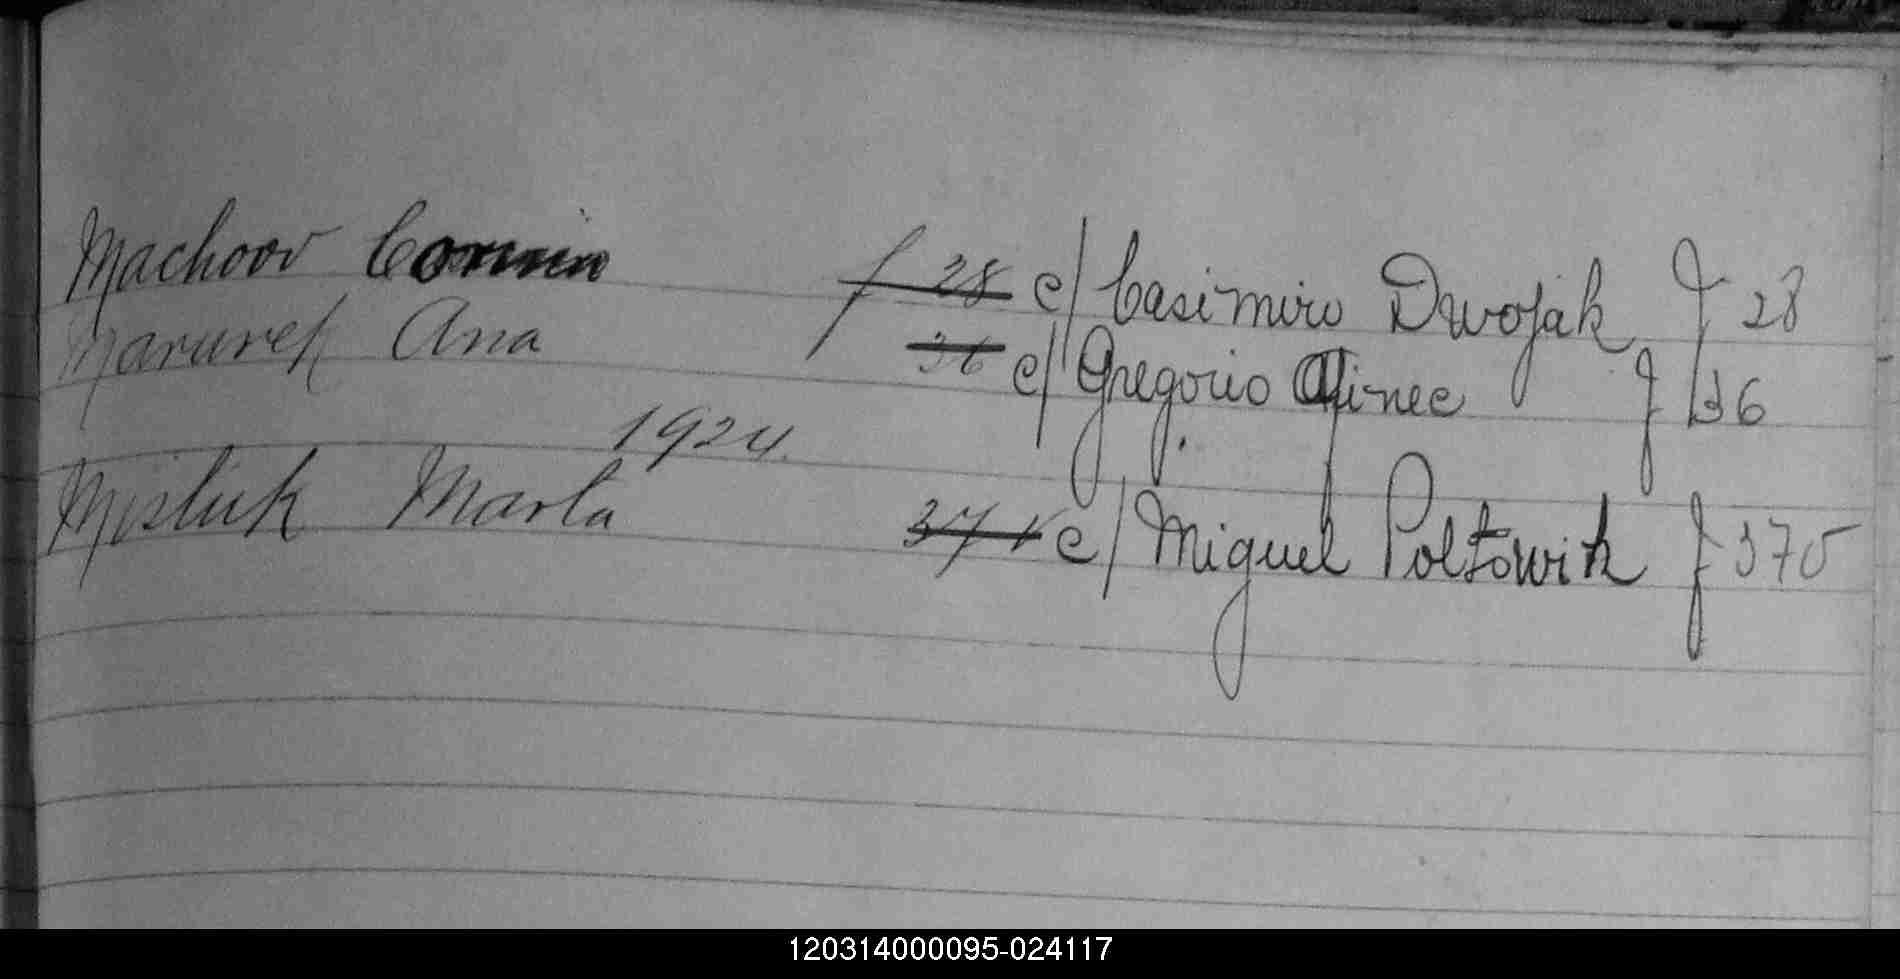 Machoov f 28 c/ Casimiro Dwojak f 28
Maruvek Ana 36 c/ Gregorio f 36
1924.
Misluk Marta c/ Miguel Poltowik f 375
120314000095-024117